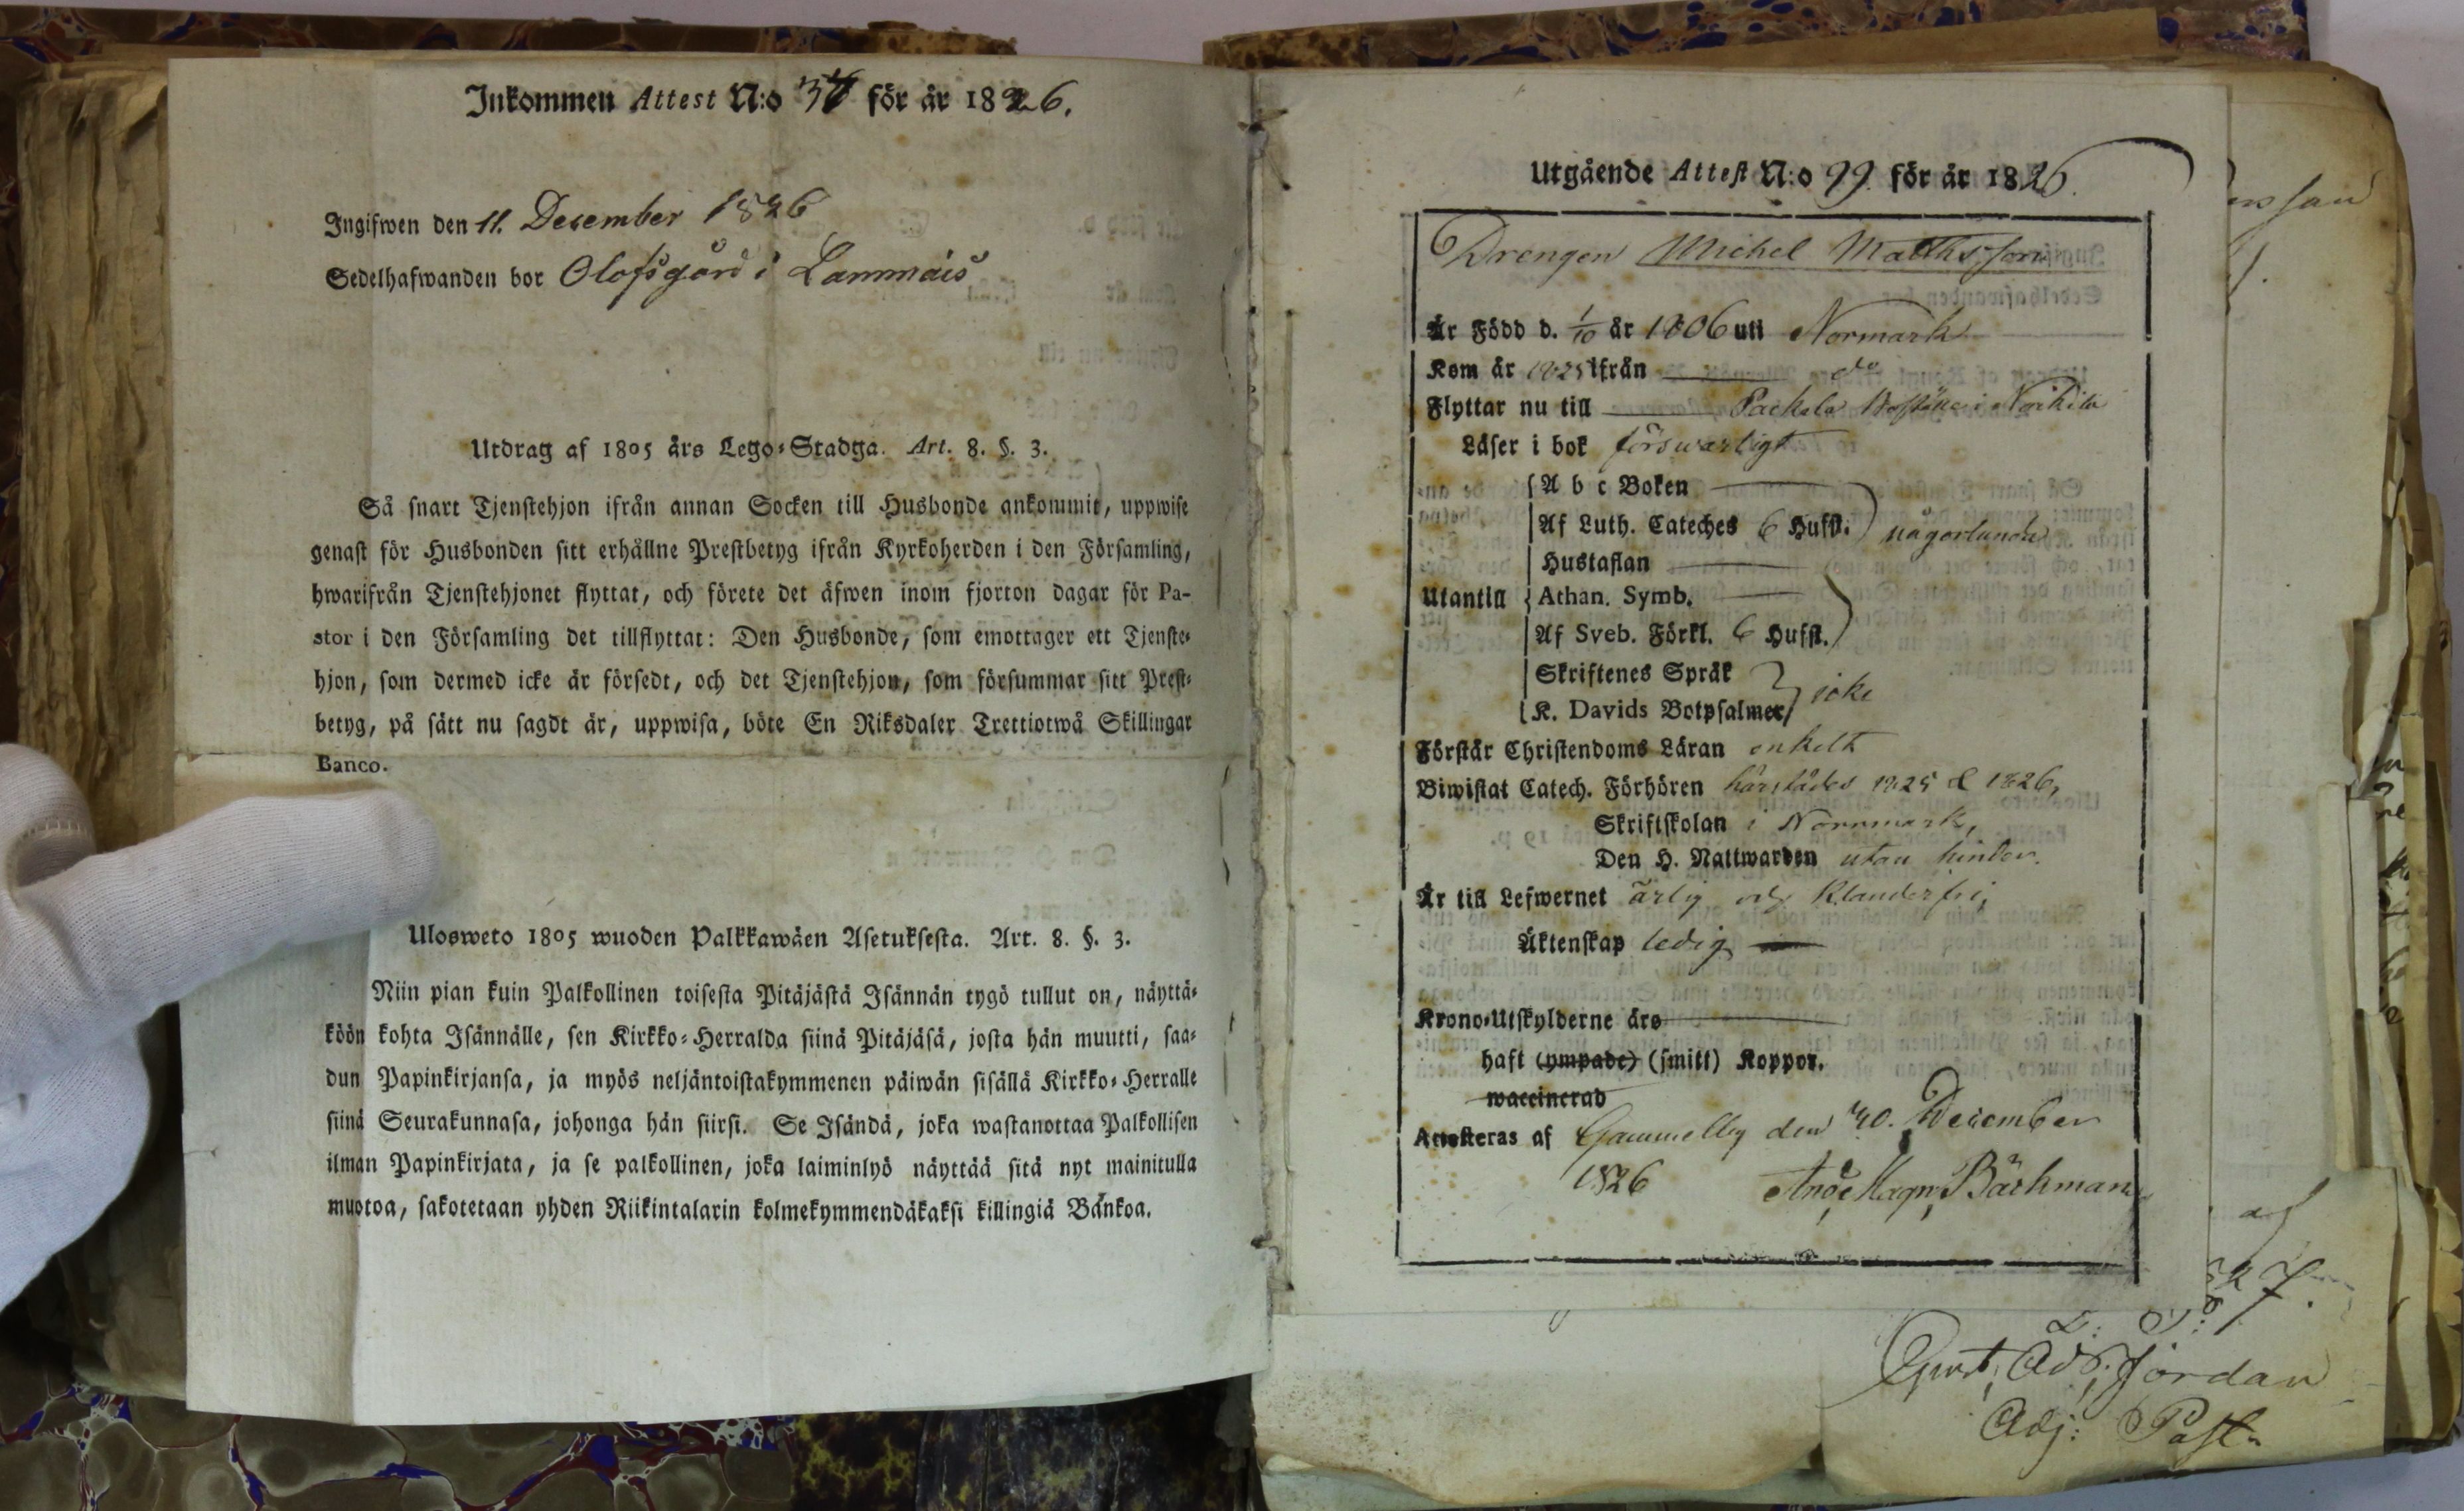 Inkommen Attest N:o för år 1826.
Ingifwen den 11. December 1826
Sedelhafwanden bor Olofsgård i Lammais
Utdrag af 1805 års Lego-Stadga. Art. 8. §. 3.
Så snart Tjenstehjon ifrån annan Socken till Husbonde ankommit, uppwise
genast för Husbonden sitt erhållne Prestbetyg ifrån Kyrkoherden i den Församling,
hwarifrån Tjenstehjonet flyttat, och förete det äfwen inom fjorton dagar för Pa-
stor i den Församling det tillflyttat: Den Husbonde, som emottager ett Tjenste-
hjon, som dermed icke är försedt, och det Tjenstehjon, som försummar sitt Prest-
betyg, på sätt nu sagdt är, uppwisa, böte En Riksdaler Trettiotwå Skillingar
Banco.
Ulosweto 1805 wuoden Palkkawäen Asetuksesta. Art. 8. §. 3.
Niin pian kuin Palkollinen toisesta Pitäjästä Isännän tygö tullut on, näyttä-
köön kohta Isännälle, sen Kirkko-Herralda siinä Pitäjäsä, josta hän muutti, saa-
dun Papinkirjansa, ja myös neljäntoistakymmenen päiwän sisällä Kirkko-Herralle
siinä Seurakunnasa, johonga hän siirsi. Se Isändä, joka wastanottaa Palkollisen
ilman Papinkirjata, ja se palkollinen, joka laiminlyö näyttää sitä nyt mainitulla
muotoa, sakotetaan yhden Riikintalarin kolmekymmendäkaksi killingiä Bánkoa.
Utgående Attest N:o 99 för år 1826.
Drengen Michel Matthsson
Är Född d. 1/10 år 1806 uti Normark
Kom år 1825 ifrån do
Flyttar nu till i
Läser i bok förswarligt
A b c Boken
Af Luth. Cateches 6 Hufst. någorlunda
Hustaflan
Utantill Athan. Symb.
Af Sveb. Förkl. 6 Hufst.
Skriftenes Språk
K. Davids Botpsalmer icke
Förstår Christendoms Läran enkelt
Biwistat Catech. Förhören härstädes 1825 & 1826,
Skriftskolan i Norrmark,
Den H. Nattwarden utan hinder.
Är till Lefwernet ärlig och klanderfri,
Äktenskap ledig
Krono-Utskylderne års
haft (ympade) (smitt) Koppor.
waccinerad
Attesteras af Gammelby den 10. December
1826 And. Magn. Bäckman
af
Adj: Past.